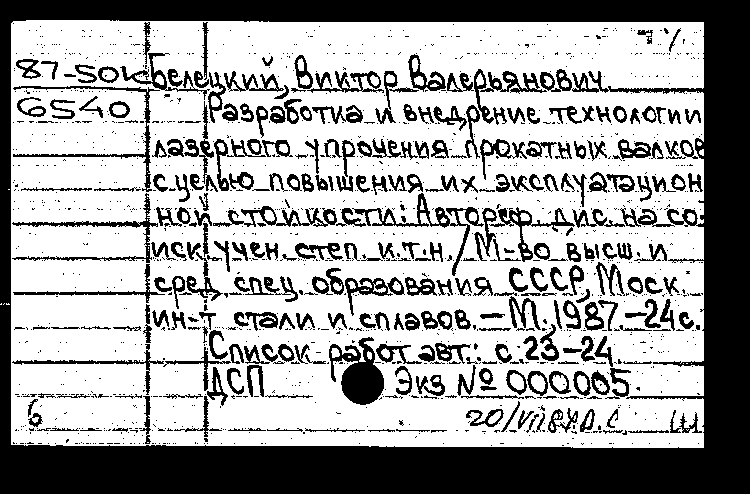 87-50к Белецкий, Виктор Валерьянович.
6540 Разработка и внедрение технологии
лазерного упрочения прокатных валков
с целью повышения их эксплуатацион
ной стойкости: Автореф. дис. на со-
иск. учен. степ. к.т.н. / М-во высш. и
сред. спец. образования СССР, Моск.
ин-т стали и сплавов. — М., 1987. — 24 с.
Список работ авт.: с. 23-24.
ДСП Экз № 000005.
6